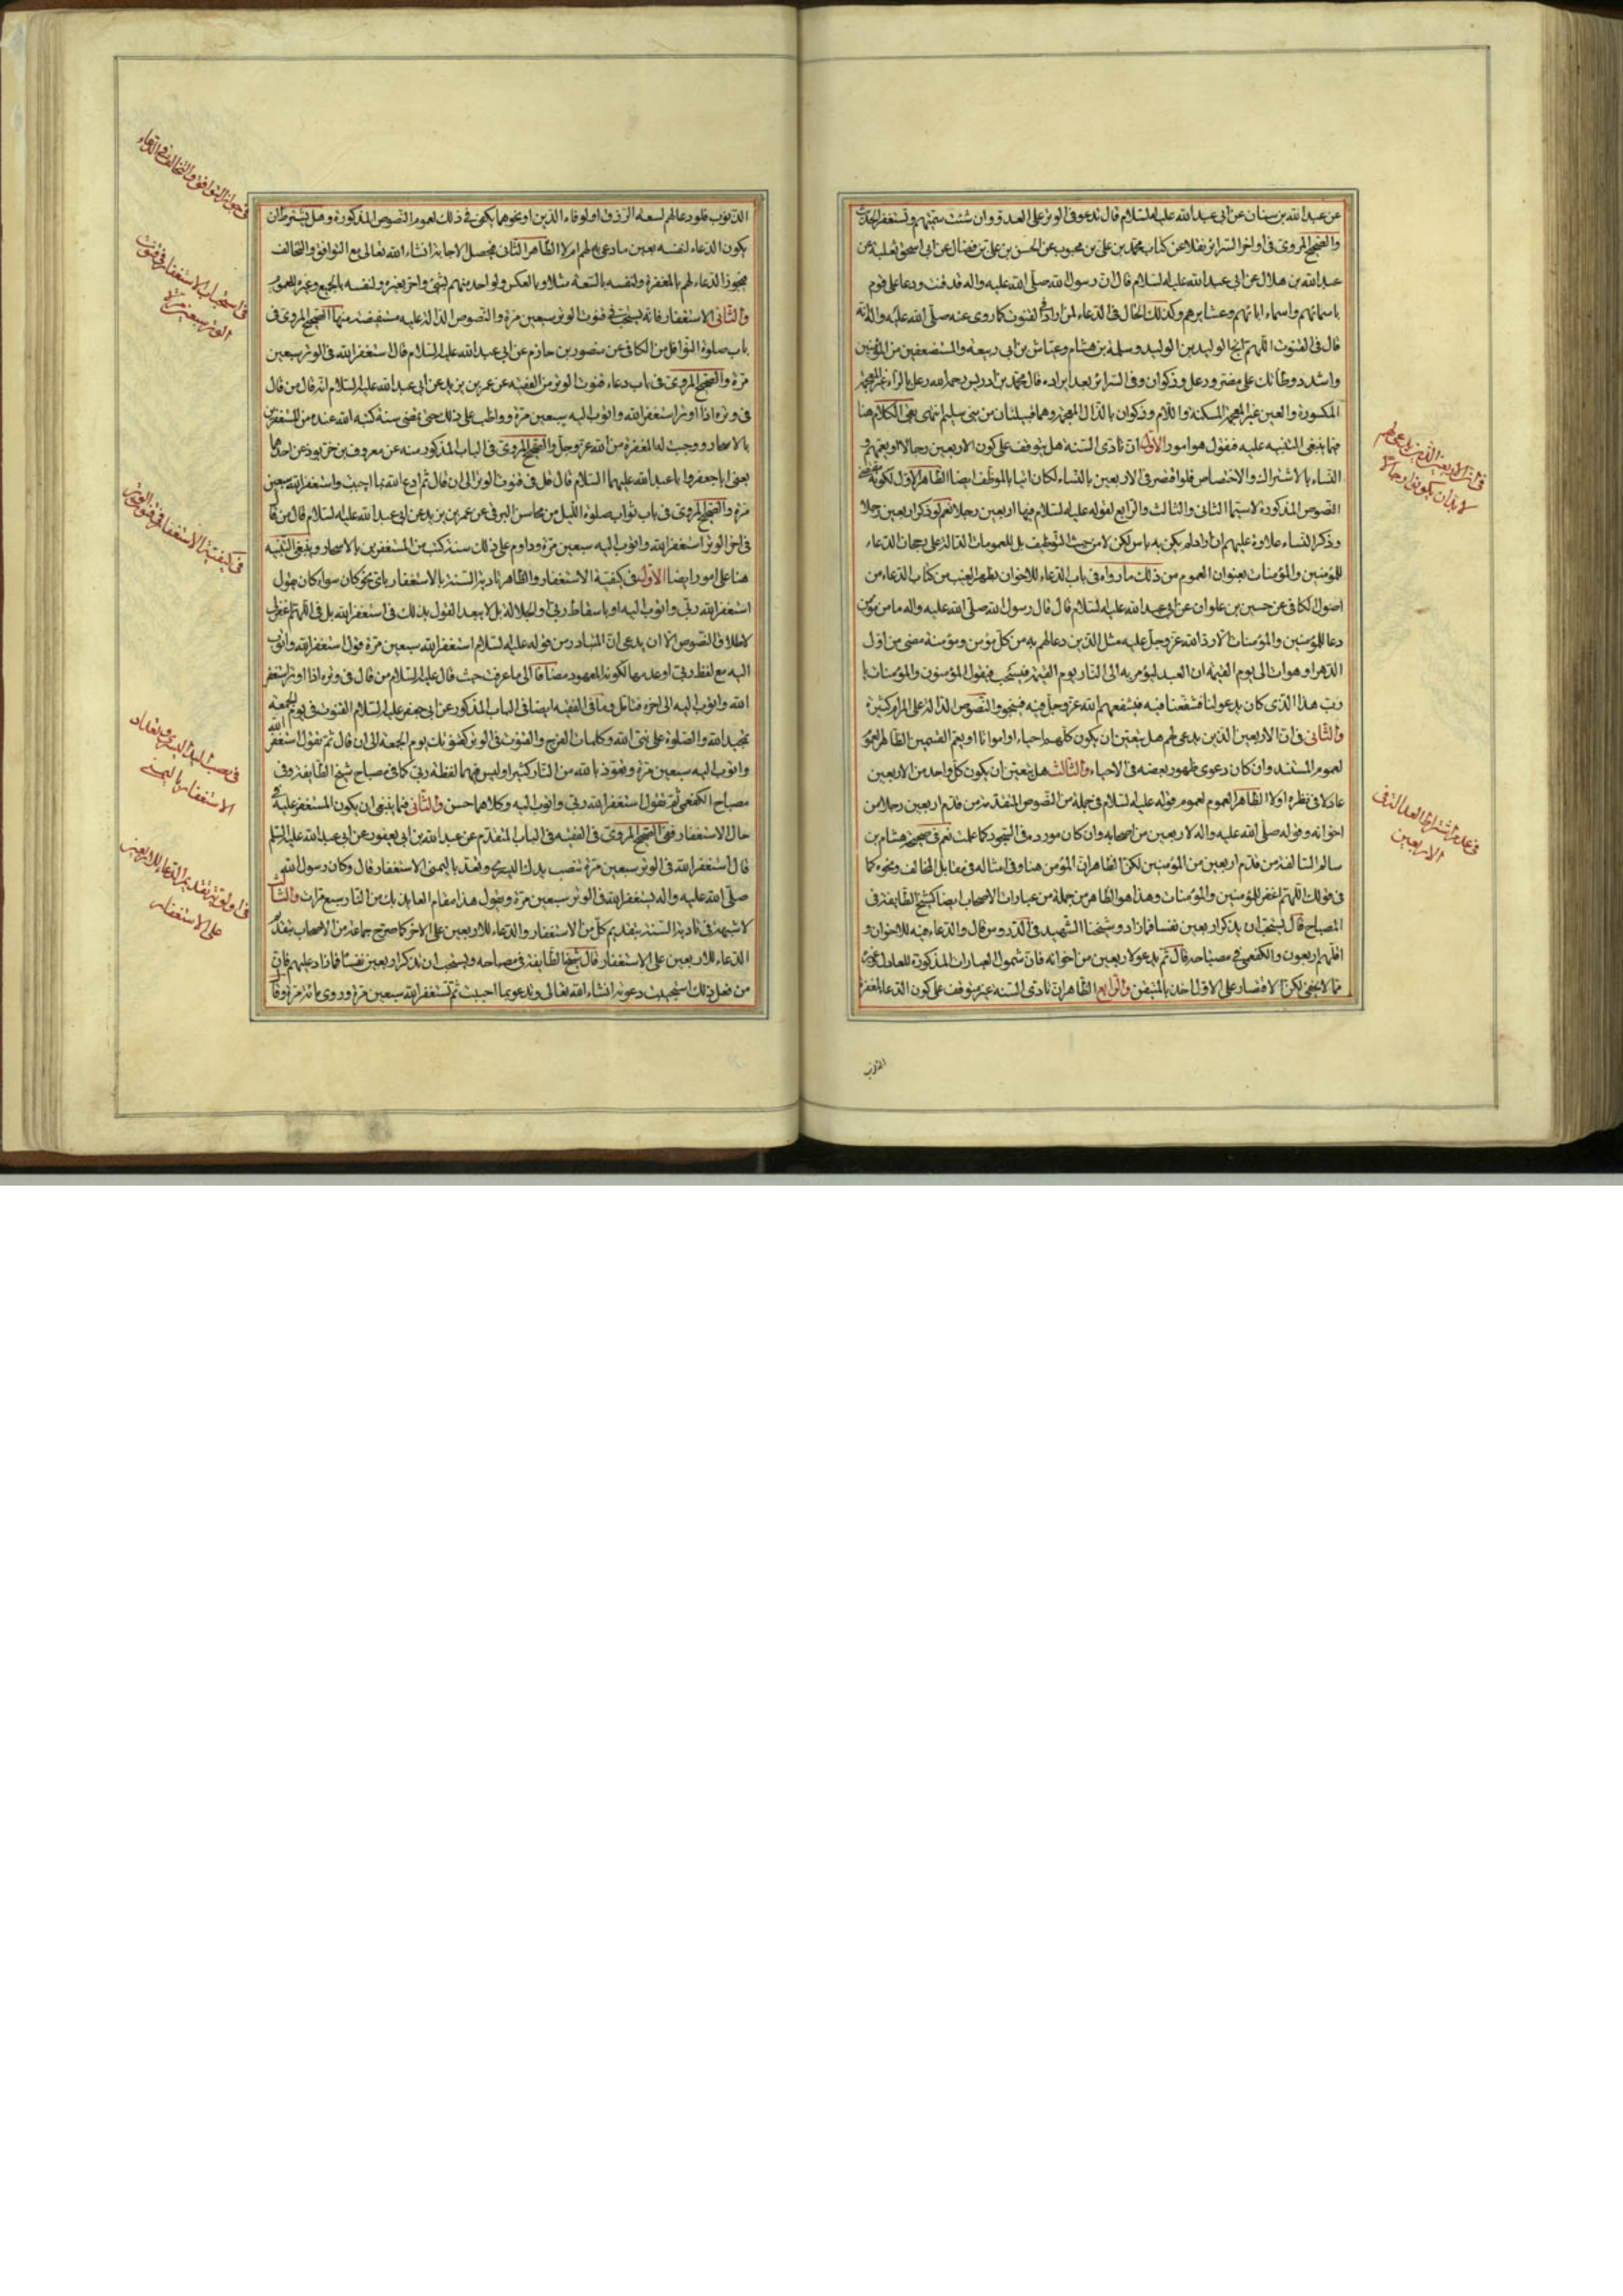 عن عبد الله بن سنان عن ابى عبد الله عليه السلام قال تدعو فى الوتر على العدو وان شئت سميتهم وتستغفر الحديث
والصحيح المروى فى اواخر السرائر نقلا عن كتاب محمد بن على بن محبوب عن الحسن بن على بن فضال عن ابى اسحق ثعلبة عن
عبد الله بن هلال عن ابى عبد الله عليه السلام قال ان رسول الله صلى الله عليه واله قد قنت ودعا على قوم
باسمائهم واسماء ابائهم وعشايرهم وكذلك الحال فى الدعاء لمن اراد فى القنوت كما روى عنه صلى الله عليه واله انه
قال فى القنوت اللهم انج الوليد بن الوليد وسلمة بن هشام وعياش بن ابى ربيعة والمستضعفين من المؤمنين
واشدد وطأتك على مضر ورعل وذكوان وفى السرائر بعد ايراده قال محمد بن ادريس رحمه الله رعل بالراء غير المعجمة
المكسورة والعين غير المعجمة المسكنة واللام وذكوان بالذال المعجمة وهما قبيلتان من بنى سليم انتهى بقى الكلام هنا
فيما ينبغى التنبيه عليه فنقول هو امور الاول ان تادى السنة هل يتوقف على كون الاربعين رجالا او يعمهم و
النساء بالاشتراك والاختصاص فلو اقتصر فى الاربعين بالنساء لكان اتيا بالموظف ايضا الظاهر الاول لكونه مقتضى
النصوص المذكورة لاسيما الثانى والثالث والرابع لقوله عليه السلام فيها اربعين رجلا نعم لو ذكر اربعين رجلا
وذكر النساء علاوة عليهم ان اراد لم يكن به باس لكن لا من حيث التوظيف بل للعمومات الدالة على رجحان الدعاء
للمؤمنين والمؤمنات بعنوان العموم من ذلك ما رواه فى باب الدعاء للاخوان بظهر الغيب من كتاب الدعاء من
اصول الكافى عن حسين بن علوان عن ابى عبد الله عليه السلام قال قال رسول الله صلى الله عليه واله ما من مؤمن
دعا للمؤمنين والمؤمنات الا رد الله عز وجل عليه مثل الذى دعا لهم به من كل مؤمن ومؤمنة مضى من اول
الدهر او هو ات الى يوم القيمة ان العبد ليؤمر به الى النار يوم القيمة فيسحب فيقول المؤمنون والمؤمنات يا
رب هذا الذى كان يدعو لنا فشفعنا فيه فيشفعهم الله عز وجل فيه فينجو والنصوص الدالة على المرام كثيرة
والثانى فى ان الاربعين الذين يدعى لهم هل يتعين ان يكون كلهم احياء او امواتا او يعم القسمين الظاهر العموم
لعموم المستند وان كان دعوى ظهور بعضه فى الاحياء والثالث هل يتعين ان يكون كل واحد من الاربعين
عادلا فى نظره او لا الظاهر العموم لعموم قوله عليه السلام فى جملة من النصوص المتقدمة من قدم اربعين رجلا من
اخوانه وقوله صلى الله عليه واله لاربعين من اصحابه وان كان مورده فى السجود كما علمت نعم فى صحيحة هشام بن
سالم السالفة من قدم اربعين من المؤمنين لكن الظاهر ان المؤمن هنا وفى امثاله فى مقابل المخالف ونحوه كما
فى قولك اللهم اغفر للمؤمنين والمؤمنات وهذا هو الظاهر من جملة من عبارات الاصحاب ايضا كشيخ الطايفة فى
المصباح قال يستحب ان يذكر اربعين نفسا فما زاد وشيخنا الشهيد فى الدروس قال والدعاء فيه للاخوان و
اقلهم اربعون والكفعمى فى مصباحه قال ثم يدعو لاربعين من اخوانه فان شمول العبارات المذكورة للعادل وغيره
مما لا يخفى لكن الاقتصار على الاول اخذ بالمتيقن والرابع الظاهر ان تادى السنة غير متوقف على كون الدعاء لمغفرة
الذنوب
فى ان الاربعين الذين يدعى لهم
لا بد ان يكونوا رجالا
فى عدم اشتراط العدالة فى
الاربعين
الذنوب فلو دعا لهم لسعة الرزق او لوفاء الدين او نحوهما يكون فى ذلك لعموم النصوص المذكورة وهل يشترط ان
يكون الدعاء لنفسه بعين ما دعى به لهم ام لا الظاهر الثانى فيحصل الاجابة انشاء الله تعالى مع التوافق والتخالف
فيجوز الدعاء لهم بالمغفرة ولنفسه بالسعة مثلا وبالعكس ولواحد منهم لشئ واخر بغيره ولنفسه بالجميع وغيره للعموم
والثانى الاستغفار فانه يستحب فى قنوت الوتر سبعين مرة والنصوص الدالة عليه مستفيضة منها الصحيح المروى فى
باب صلوة النوافل من الكافى عن منصور بن حازم عن ابى عبد الله عليه السلام قال استغفر الله فى الوتر سبعين
مرة والصحيح المروى فى باب دعاء قنوت الوتر من الفقيه عن عمر بن يزيد عن ابى عبد الله عليه السلام انه قال من قال
فى وتره اذا اوتر استغفر الله واتوب اليه سبعين مرة وواظب على ذلك حتى تمضى سنة كتبه الله عنده من المستغفرين
بالاسحار ووجبت له المغفرة من الله عز وجل والصحيح المروى فى الباب المذكور منه عن معروف بن خربوذ عن احدهما
يعنى ابا جعفر وابا عبد الله عليهما السلام قال قل فى قنوت الوتر الى ان قال ثم ادع الله بما احببت واستغفر الله سبعين
مرة والصحيح المروى فى باب ثواب صلوة الليل من محاسن البرقى عن عمر بن يزيد عن ابى عبد الله عليه السلام قال من قال
فى اخر الوتر استغفر الله واتوب اليه سبعين مرة وداوم على ذلك سنة كتب من المستغفرين بالاسحار وينبغى التنبيه
هنا على امور ايضا الاول فى كيفية الاستغفار والظاهر تادية السنة بالاستغفار باى نحو كان سواء كان بقول
استغفر الله ربى واتوب اليه او باسقاط ربى او الجلالة بل لا يبعد القول بذلك فى استغفر الله بل فى اللهم اغفر لى
لاطلاق النصوص الا ان يدعى ان المتبادر من قوله عليه السلام استغفر الله سبعين مرة قول استغفر الله واتوب
اليه مع لفظ ربى او عدمها لكونه المعهود مضافا الى ما عرفت حيث قال عليه السلام من قال فى وتره اذا اوتر استغفر
الله واتوب اليه الى اخره فتامل وما فى الفقيه ايضا فى الباب المذكور عن ابى جعفر عليه السلام القنوت فى يوم الجمعة
تمجيد الله والصلوة على نبى الله وكلمات الفرج والقنوت فى الوتر كقنوتك يوم الجمعة الى ان قال ثم تقول استغفر الله
واتوب اليه سبعين مرة وتعوذ بالله من النار كثيرا وليس فيهما لفظة ربى كما فى مصباح شيخ الطايفة وفى
مصباح الكفعمى ثم تقول استغفر الله ربى واتوب اليه وكلاهما حسن والثانى فيما ينبغى ان يكون المستغفر عليه فى
حال الاستغفار ففى الصحيح المروى فى الفقيه فى الباب المتقدم عن عبد الله بن ابى يعفور عن ابى عبد الله عليه السلم
قال استغفر الله فى الوتر سبعين مرة تنصب يدك اليسرى وتعد باليمنى الاستغفار قال وكان رسول الله
صلى الله عليه واله يستغفر الله فى الوتر سبعين مرة ويقول هذا مقام العايذ بك من النار سبع مرات والثالث
لا شبهة فى تادية السنة بتقديم كل من الاستغفار والدعاء للاربعين على الاخر كما صرح جماعة من الاصحاب بتقديم
الدعاء للاربعين على الاستغفار قال شيخ الطايفة فى مصباحه ويستحب ان يذكر اربعين نفسا فما زاد عليهم فان
من فعل ذلك استجيبت دعوته انشاء الله تعالى وتدعو بما احببت ثم تستغفر الله سبعين مرة وروى مائة مرة وقال
فى جواز التوافق والتخالف فى الدعاء
فى استحباب الاستغفار فى قنوت
الوتر سبعين مرة
فى كيفية الاستغفار فى قنوت الوتر
فى نصب اليد اليسرى وتعداد
الاستغفار باليمنى
فى اولوية تقديم الدعاء للاربعين
على الاستغفار